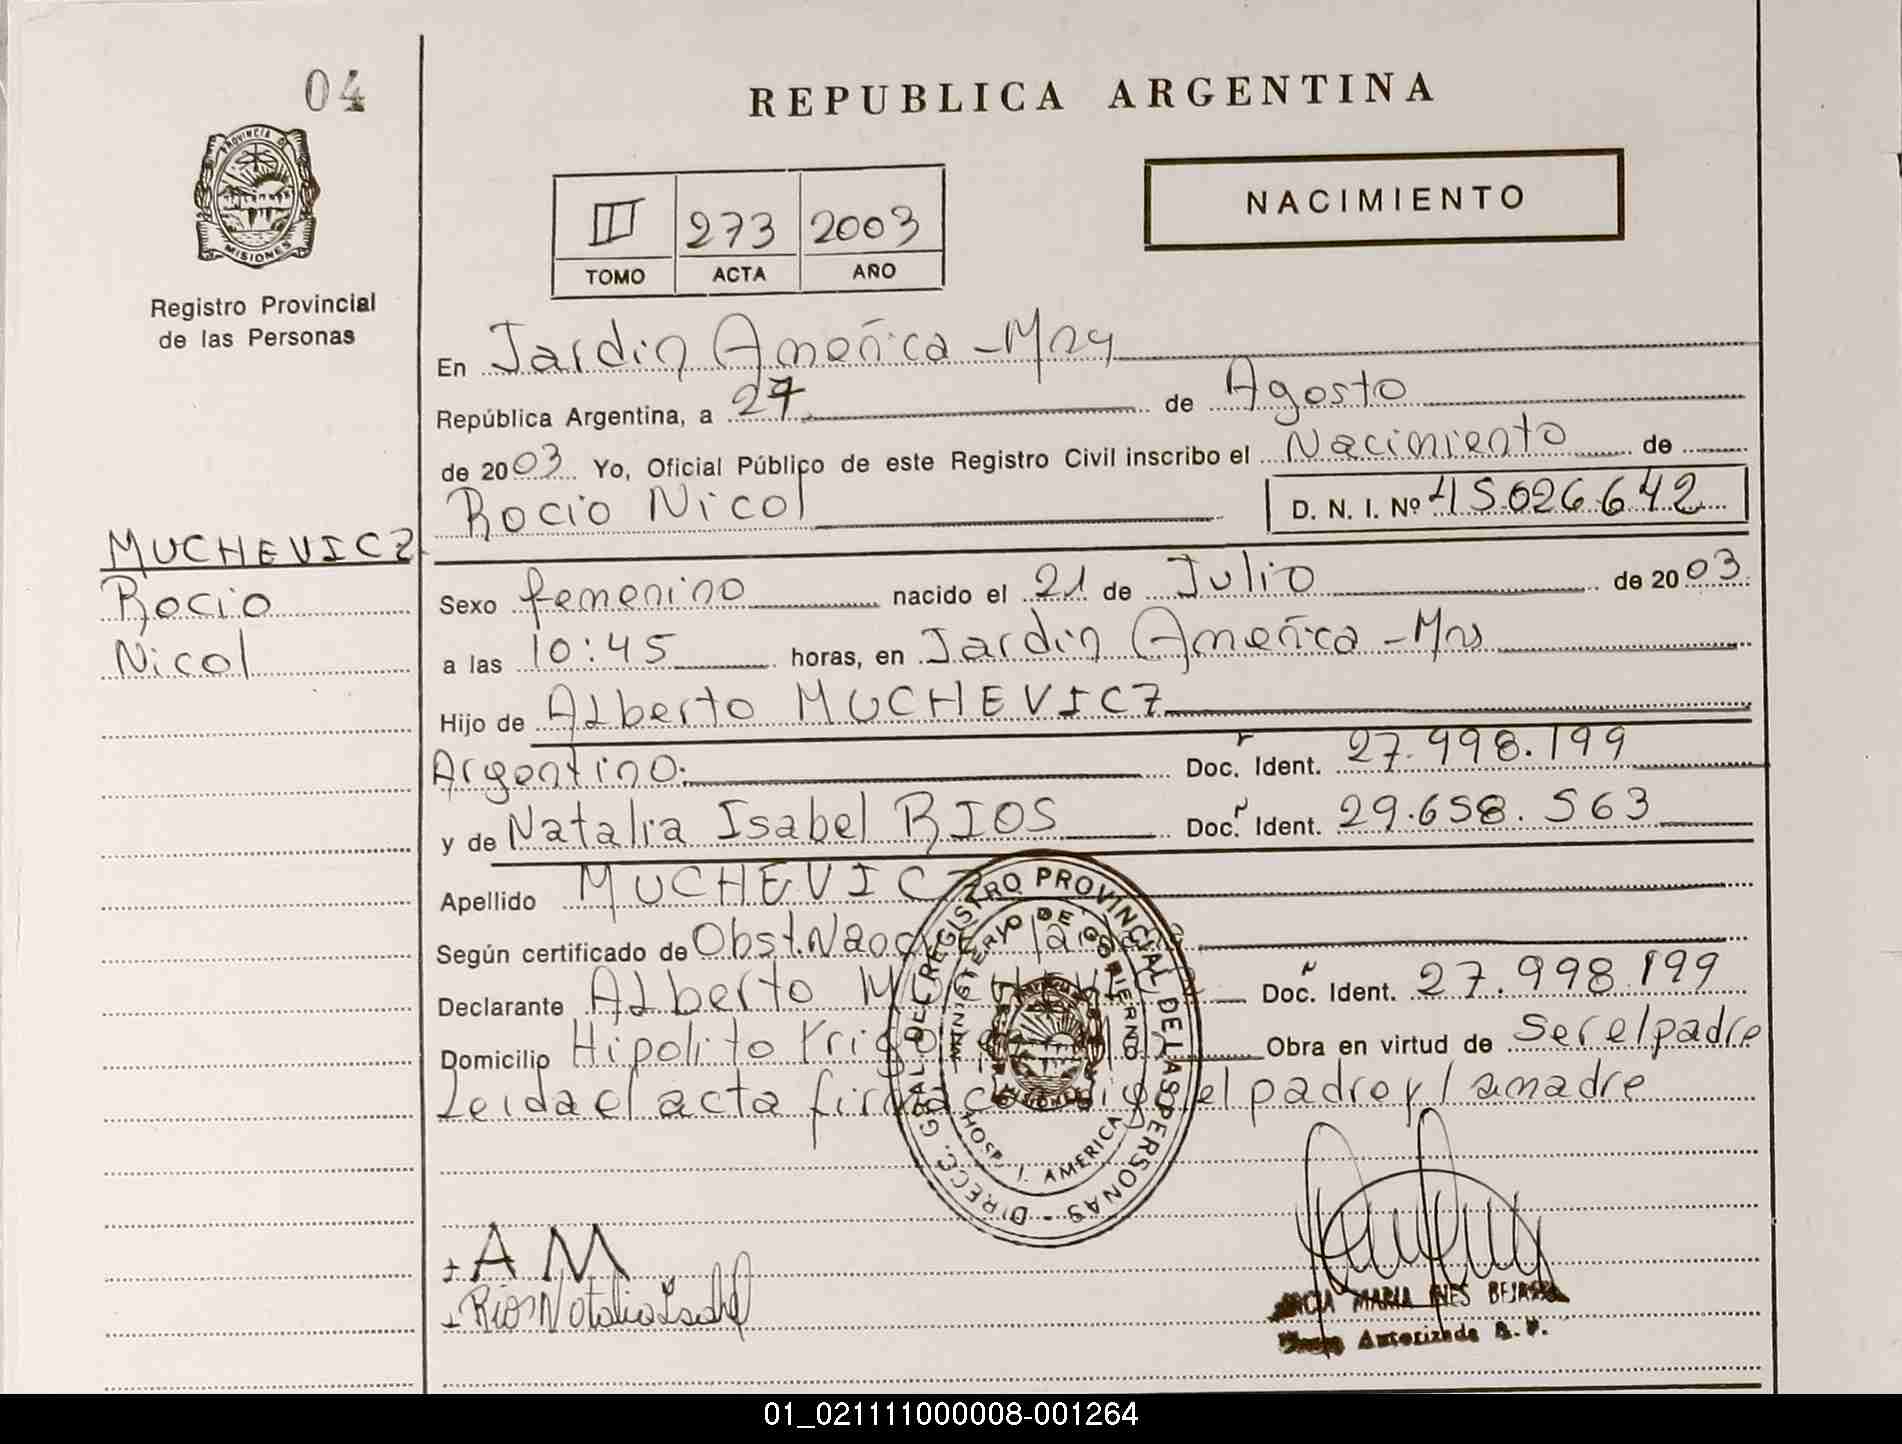 04
REPUBLICA ARGENTINA
PROVINCIA D
MISIONES
Registro Provincial
de las Personas
III 273 2003
TOMO ACTA AÑO
NACIMIENTO
En Jardin América - Mns
República Argentina, a 27 de Agosto
de 2003 Yo, Oficial Público de este Registro Civil inscribo el Nacimiento de
Rocio Nicol D. N. I. Nº 45.026.642
MUCHEVICZ
Rocio
Nicol
Sexo femenino nacido el 21 de Julio de 2003
a las 10:45 horas, en Jardin América - Mns
Hijo de Alberto MUCHEVICZ
Argentino. Doc. Ident. 27.998.199
y de Natalia Isabel RIOS Doc. Ident. 29.658.563
Apellido MUCHEVICZ
Según certificado de Obst.
Declarante Alberto MUCHEVICZ Doc. Ident. 27.998.199
Domicilio Hipolito Yrigoyen Obra en virtud de ser el padre
Leida el acta firma conmigo el padre y la madre
DIRECC. GRAL. DE REGISTRO PROVINCIAL DE LAS PERSONAS
MINISTERIO DE GOBIERNO
MISIONES
HOSP. J. AMERICA
A M
Rios Natalia Isabel
MARIA INES
Autorizada
01_021111000008-001264